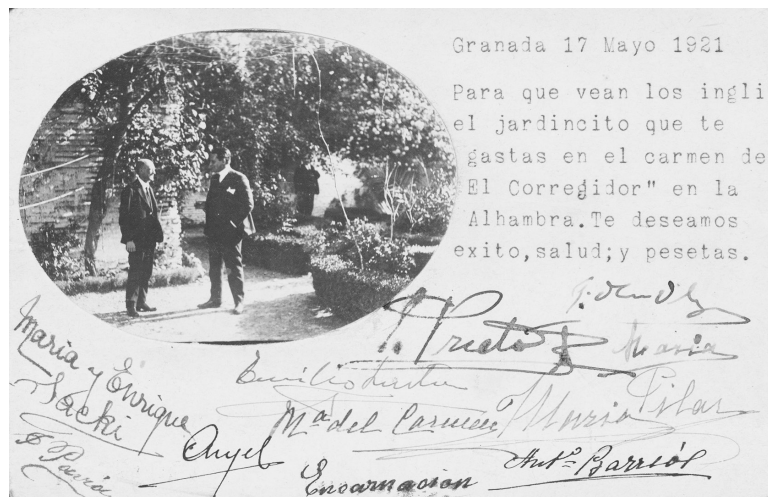 Granada 17 Mayo 1921
Para que vean los ingli
el jardincito que te
gastas en el carmen de
El Corregidor" en la
Alhambra. Te deseamos
exito, salud; y pesetas.
Prieto
Maria
Maria y Enrique
Jacki
Emilio
Mª del Carmen
Maria Pilar
Angel
Antº Barrios
Encarnacion